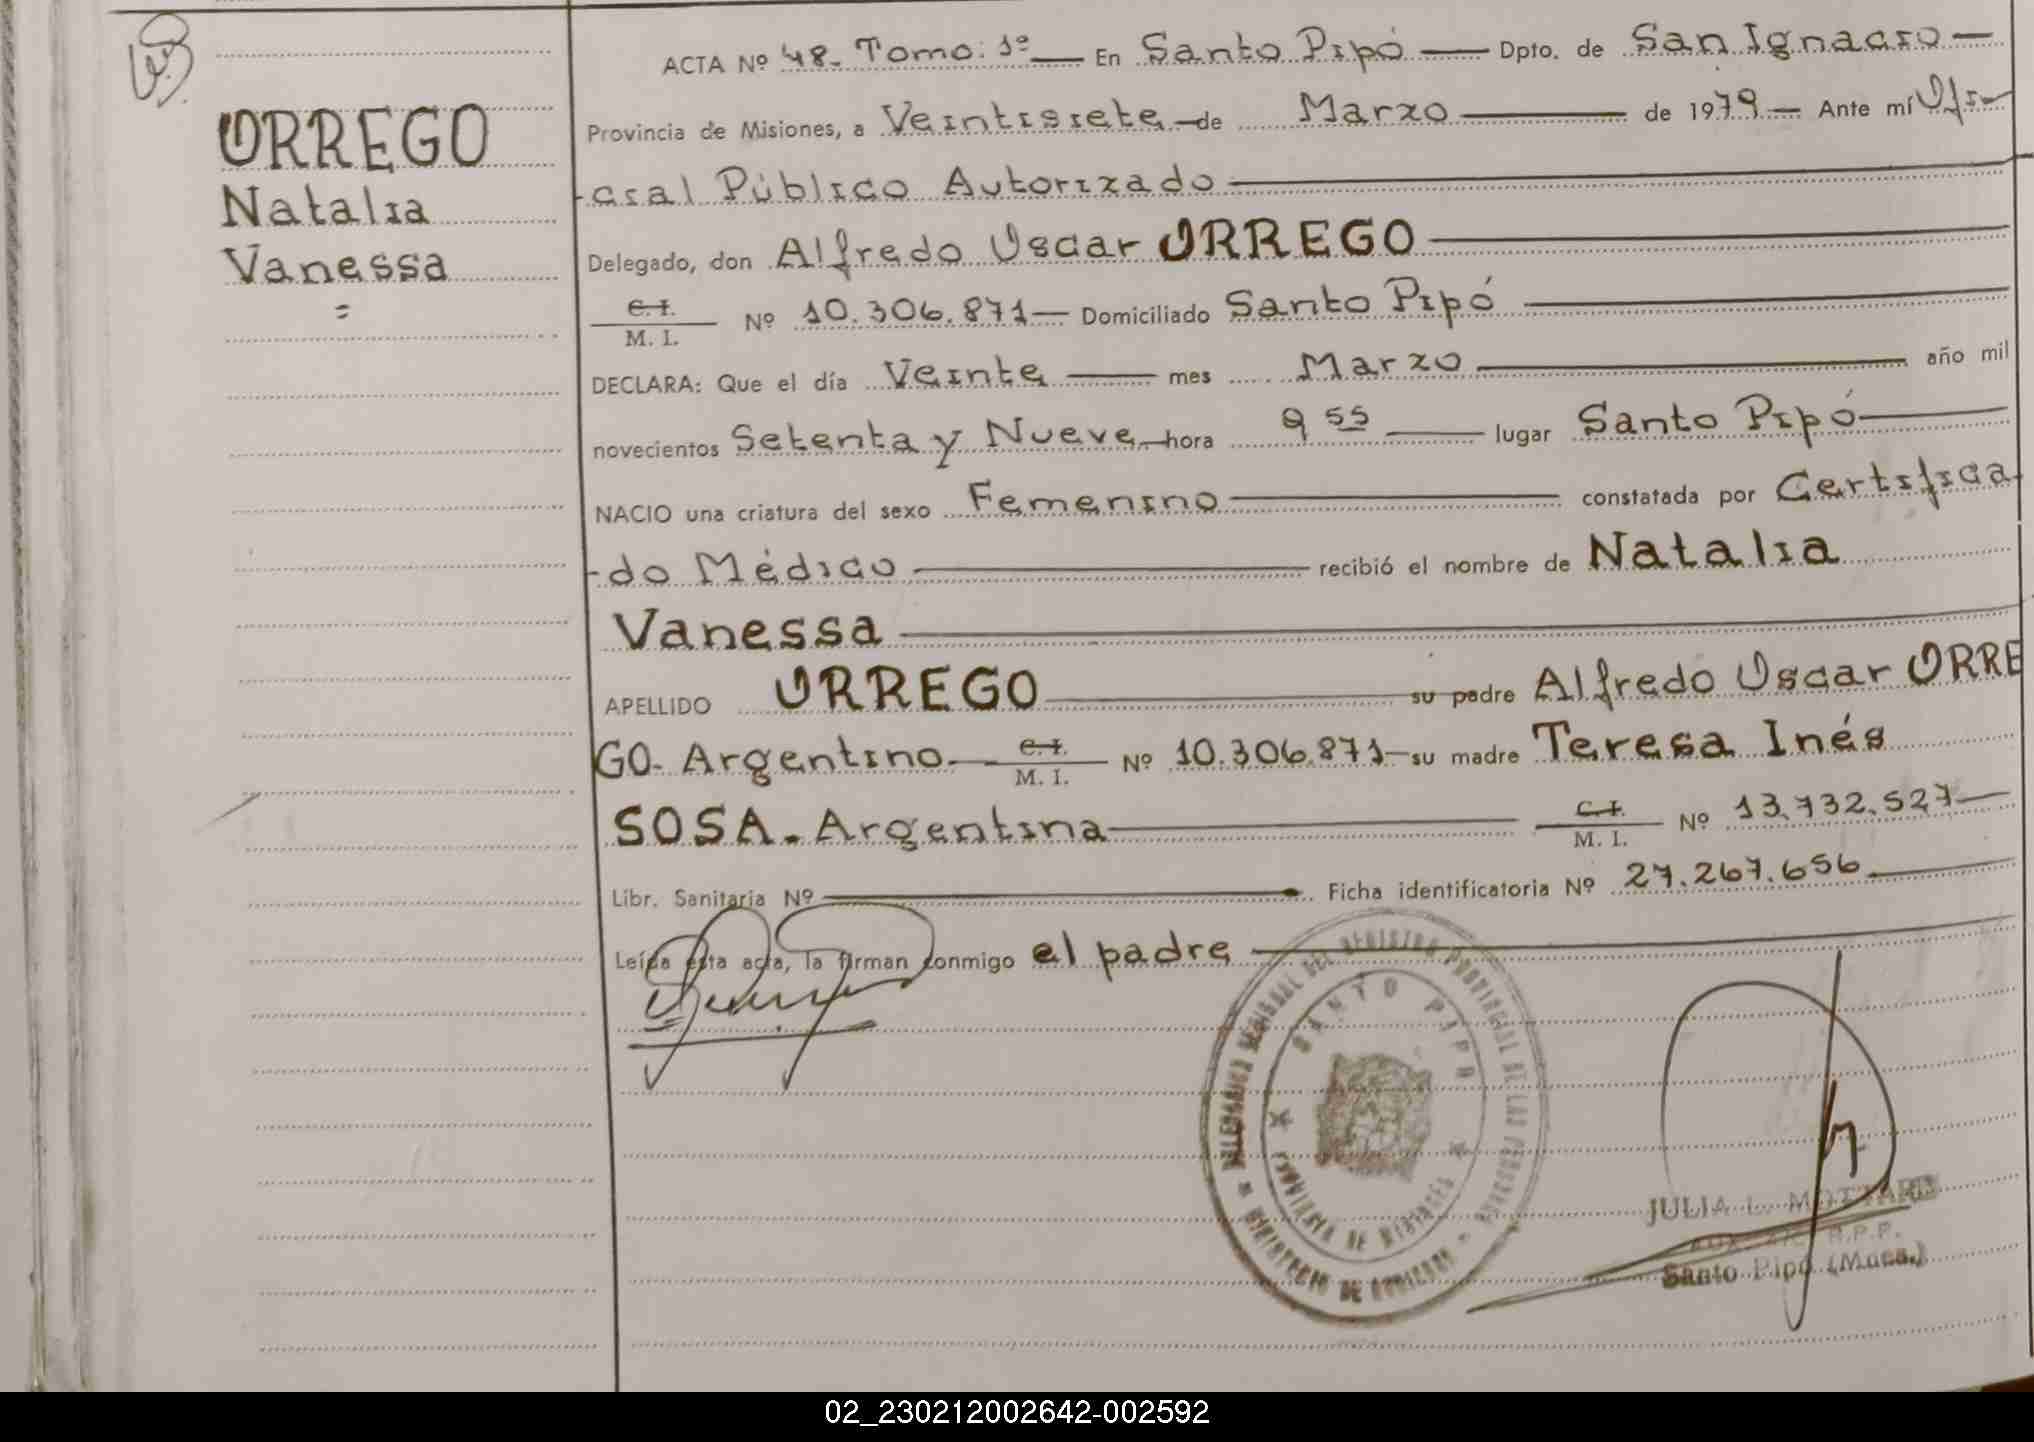 ORREGO
Natalia
Vanessa
=
ACTA Nº 48- Tomo: 1º — En Santo Pipó — Dpto. de San Ignacio —
Provincia de Misiones, a Veintisiete - de Marzo — de 1979 — Ante mí Ofi-
-cial Público Autorizado —
Delegado, don Alfredo Oscar ORREGO —
C. I.
M. I. Nº 10.306.871 — Domiciliado Santo Pipó —
DECLARA: Que el día Veinte — mes Marzo — año mil
novecientos Setenta y Nueve - hora 9 55 — lugar Santo Pipó —
NACIO una criatura del sexo Femenino — constatada por Certifica-
-do Médico — recibió el nombre de Natalia
Vanessa —
APELLIDO ORREGO — su padre Alfredo Oscar ORRE
GO- Argentino - C. I. M. I. Nº 10.306.871 - su madre Teresa Inés
SOSA - Argentina — C. I. M. I. Nº 13.732.527 —
Libr. Sanitaria Nº — Ficha identificatoria Nº 27.267.656 —
Leída esta acta, la firman conmigo el padre —
DELEGACION REGIONAL DEL REGISTRO PROVINCIAL DE LAS PERSONAS
MINISTERIO DE GOBIERNO
SANTO PIPO
PROVINCIA DE MISIONES
JULIA L.
R.P.P.
Santo Pipó (Mnes.)
02_230212002642-002592